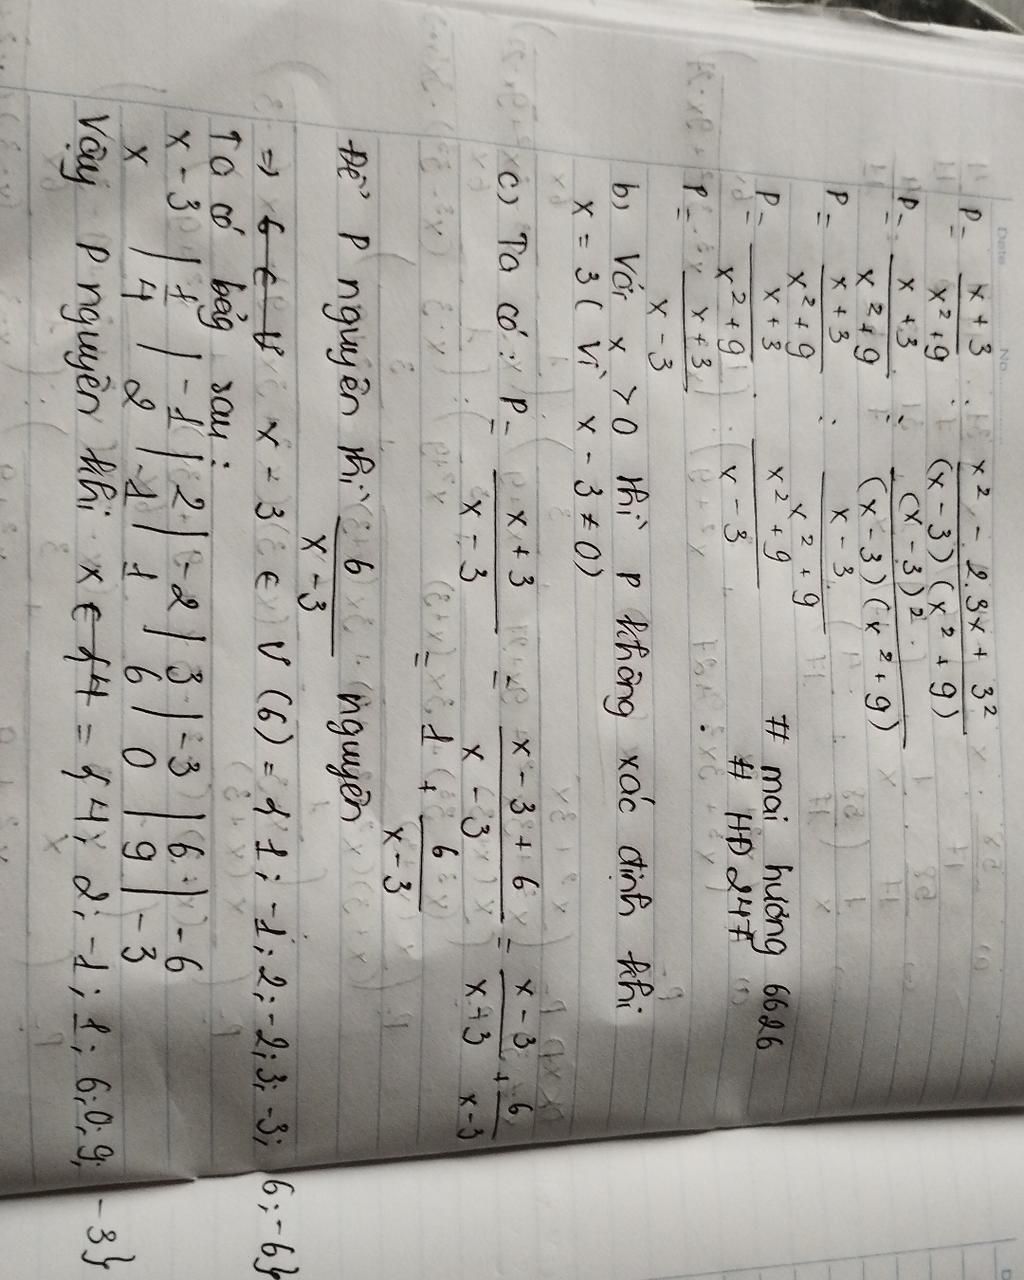 Date No.
P = x + 3 / x² + 9 : x² - 2.3x + 3² / (x - 3)(x² + 9)
P = x + 3 / x² + 9 : (x - 3)² / (x - 3)(x² + 9)
P = x + 3 / x² + 9 : x - 3 / x² + 9
P = x + 3 / x² + 9 . x² + 9 / x - 3
# mai hương 6626
# HĐ 247
P = x + 3 / x - 3
b, Với x > 0 thì P không xác định khi
x = 3 ( Vì x - 3 ≠ 0)
c, Ta có : P = x + 3 / x - 3 = x - 3 + 6 / x - 3 = x - 3 / x - 3 + 6 / x - 3
= 1 + 6 / x - 3
Để P nguyên thì 6 / x - 3 nguyên
=> x - 3 ∈ Ư (6) = { 1; -1; 2; -2; 3; -3; 6; -6}
Ta có bảng sau :
x - 3 | 1 | -1 | 2 | -2 | 3 | -3 | 6 | -6
x | 4 | 2 | -1 | 1 | 6 | 0 | 9 | -3
Vậy P nguyên khi x ∈ = { 4; 2; -1; 1; 6; 0; 9; -3}